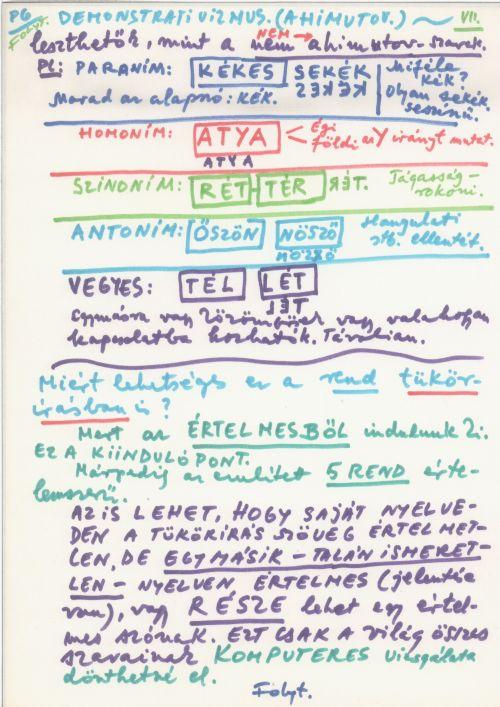 PG DEMONSTRATIVIZMUS. (AHIMUTOV.) VII.
Folyt. NEM
leszthetők, mint a nem ahimutov-szavak.
Pl: PARANÍM: KÉKES SEKÉK Miféle
KÉKES kék?
Marad az alapszó: KÉK. Olyan sekék
HOMONÍM: ATYA Égi
földi az Y irányt mutat.
ATYA
SZINONÍM: RÉT-TÉR RÉT. Tágasság-
rokoni.
ANTONÍM: ŐSZÖN NÖSZŐ Hangulati
stb. ellentét.
VEGYES: TÉL LÉT
LÉT
egymásra vagy vagy valahogyan
kapcsolatba hozhatók. Távolian.
Miért lehetséges ez a rend tükör-
írásban is?
Mert az ÉRTELMESBŐL indulunk ki.
EZ A KIINDULÓPONT.
Márpedig az említet 5 REND érte-
lemszerű.
AZ IS LEHET, HOGY SAJÁT NYELVE-
DEN A TÜKÖRÍRÁS SZÖVEG ÉRTELMET-
LEN, DE EGY MÁSIK - TALÁN ISMERET-
LEN - NYELVEN ÉRTELMES (jelentése
van), vagy RÉSZE lehet egy értel-
mes szónak. EZT CSAK A világ összes
szavainak KOMPUTERES vizsgálata
dönthetné el.
Folyt.